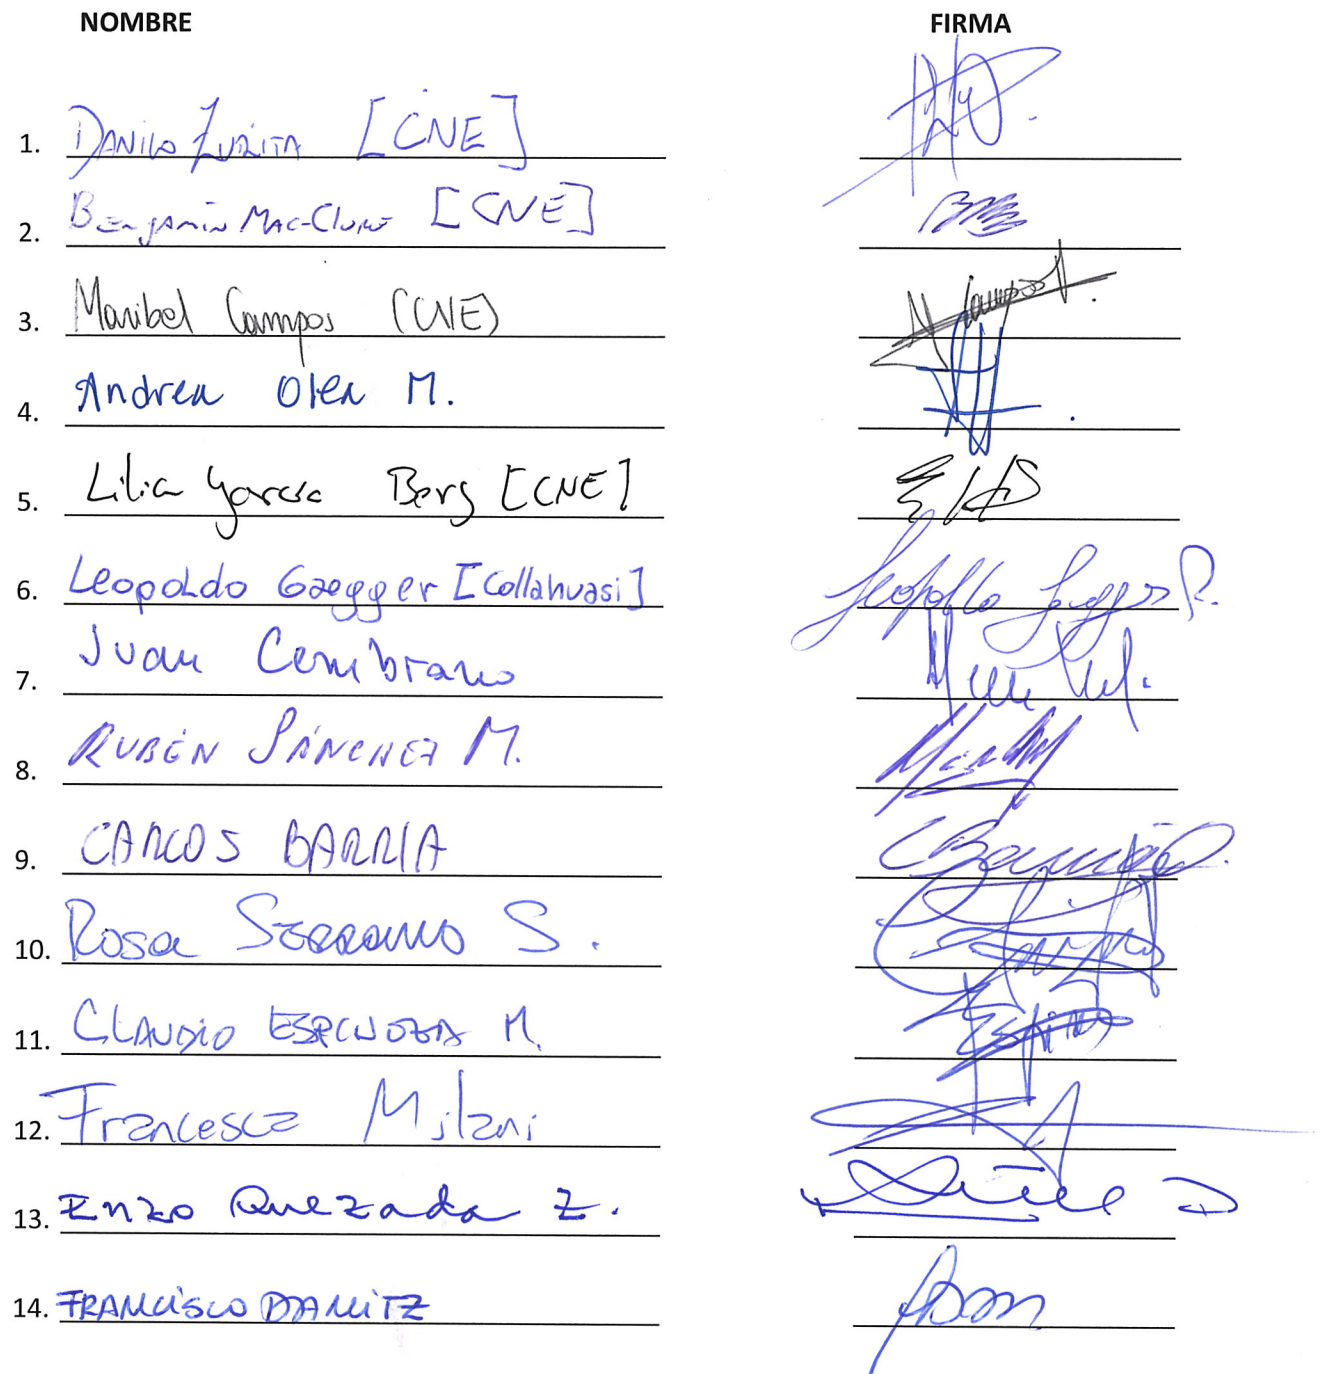 NOMBRE FIRMA
1. DANILO ZURITA [CNE]
2. BENJAMIN MAC-CLURE [CNE]
3. Maribel Campos (CNE)
4. Andrea Olea M.
5. Lilia García Berg [CNE]
6. Leopoldo Gaegger [Collahuasi]
7. Juan Cembrano
8. RUBÉN SÁNCHEZ M.
9. CARLOS BARRIA
10. Rosa Serrano S.
11. CLAUDIO ESPINOZA M.
12. Francesca Milani
13. Enzo Quezada Z.
14. FRANCISCO DAMITZ